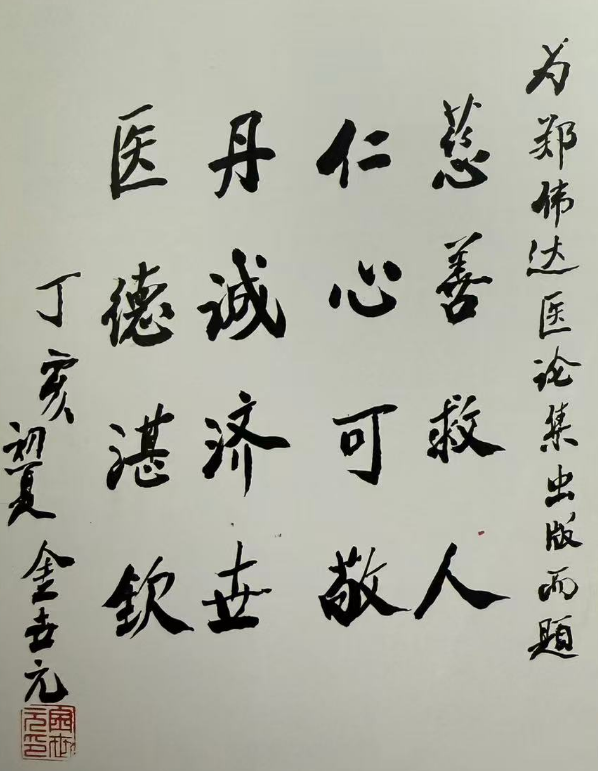 为郑伟达医论集出版而题
慈善救人
仁心可敬
丹诚济世
医德湛钦
丁亥初夏 金世元